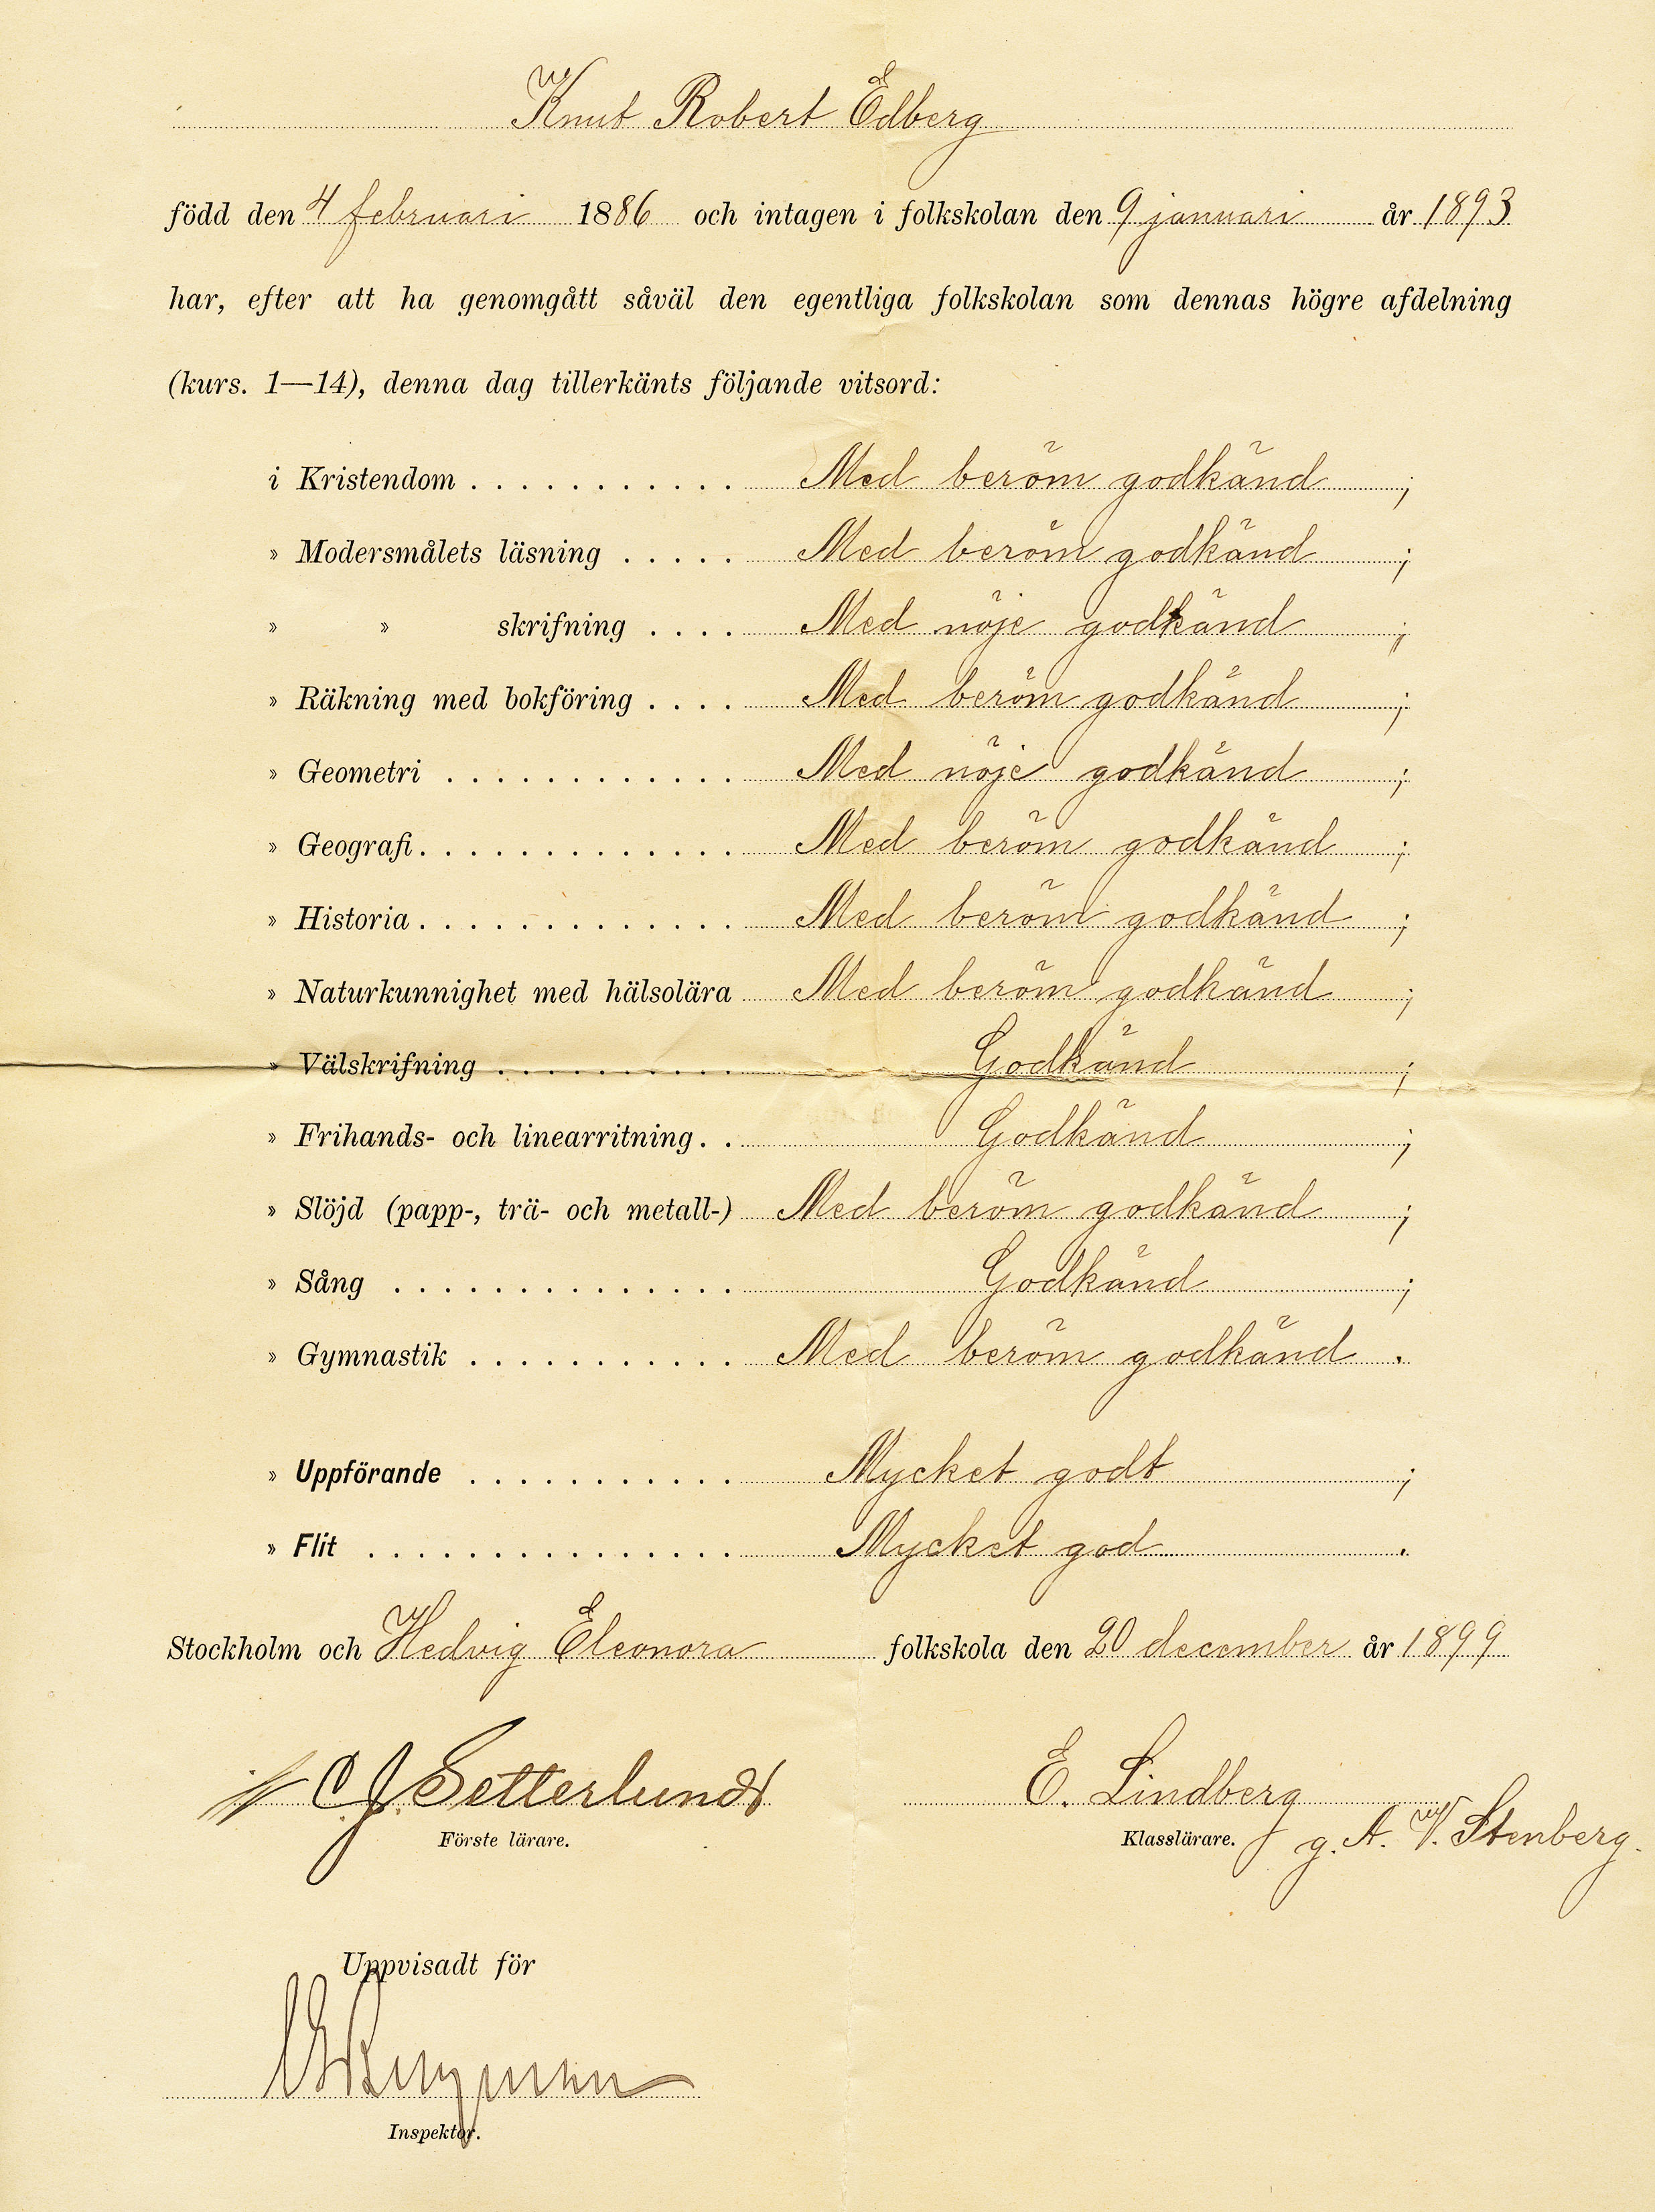 Knut Robert Edberg
född den 4 februari 1886 och intagen i folkskolan den 9 januari år 1893
har, efter att ha genomgått såväl den egentliga folkskolan som dennas högre afdelning
(kurs. 1—14), denna dag tillerkänts följande vitsord:
i Kristendom . . . . . . . . . . . Med beröm godkänd ;
» Modersmålets läsning . . . . . Med beröm godkänd ;
» » skrifning . . . . Med nöje godkänd ;
» Räkning med bokföring . . . . Med beröm godkänd ;
» Geometri . . . . . . . . . . . . Med nöje godkänd ;
» Geografi . . . . . . . . . . . . . Med beröm godkänd ;
» Historia . . . . . . . . . . . . . Med beröm godkänd ;
» Naturkunnighet med hälsolära Med beröm godkänd ;
» Välskrifning . . . . . . . . . . Godkänd ;
» Frihands- och linearritning . . Godkänd ;
» Slöjd (papp-, trä- och metall-) Med beröm godkänd ;
» Sång . . . . . . . . . . . . . . Godkänd ;
» Gymnastik . . . . . . . . . . . Med beröm godkänd .
» Uppförande . . . . . . . . . . . Mycket godt ;
» Flit . . . . . . . . . . . . . . . Mycket god .
Stockholm och Hedvig Eleonora folkskola den 20 december år 1899
C J Setterlund E. Lindberg
Förste lärare. Klasslärare. g. A. W. Stenberg.
Uppvisadt för
Bergman
Inspektor.